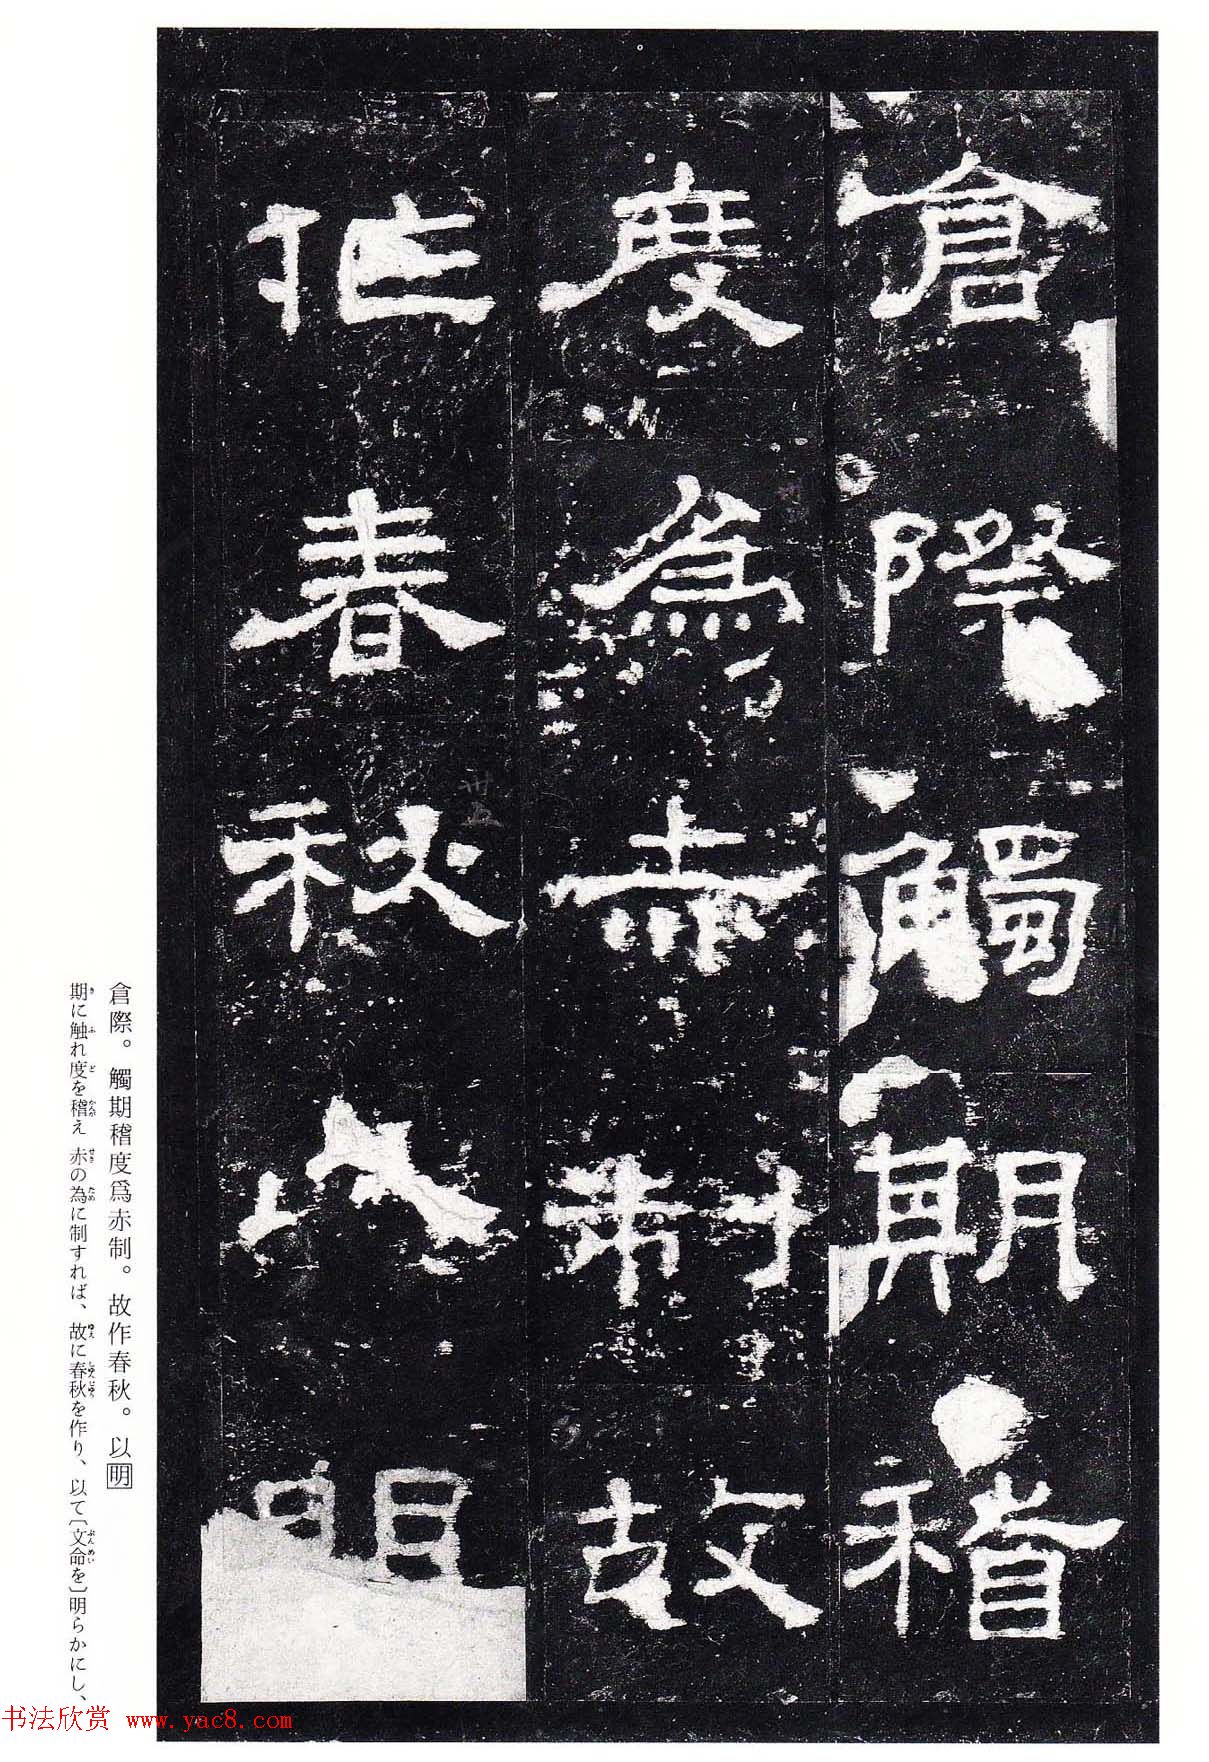 倉際觸期稽
度為赤制故
作春秋以明
卅五
倉際。觸期稽度爲赤制。故作春秋。以明
期に触れ度を稽え 赤の為に制すれば、故に春秋を作り、以て〔文命を〕明らかにし、
书法欣赏 www.yac8.com